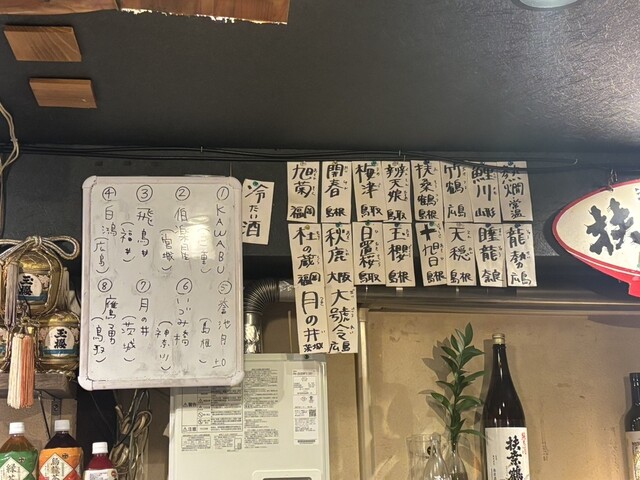 常温
鯉川 山形
竹鶴 広島
扶桑鶴 島根
辨天娘 鳥取
梅津 鳥取
開春 島根
旭菊 福岡
龍勢 広島
睡龍 奈良
天穏 島根
十旭日 島根
玉櫻 島根
日置桜 鳥取
秋鹿 大阪
杜の蔵 福岡
大號令 広島
月の井 茨城
冷たい酒
① KAWABU
② 伯楽星 (宮城)
③ 飛鳥井 (福井)
④ 白鴻 (広島)
⑤ 池月 ±0
⑥ いづみ橋 (神奈川)
⑦ 月の井 (茨城)
⑧ 鷹勇 (鳥取)
扶
扶桑鶴
玉櫻
緑茶
烏龍茶